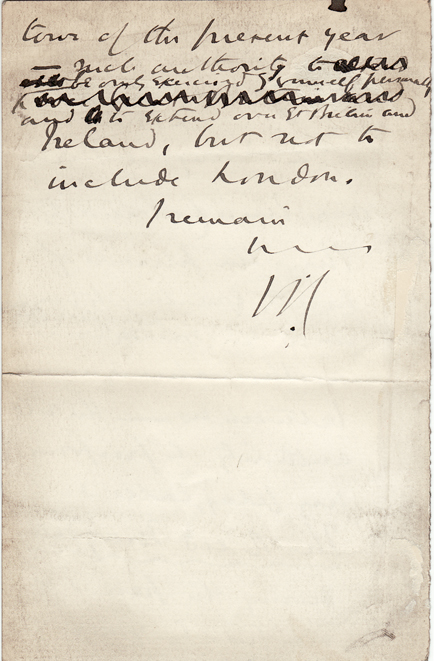 tour of the present year
— such authority to
be only exercised by yourself personally
and to extend over Gt Britain and
Ireland, but not to
include London.
I remain